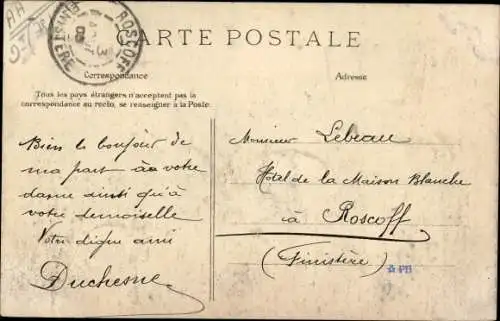 AA
ROSCOFF
FINISTÈRE
3
09
CARTE POSTALE
Correspondance
Tous les pays étrangers n'acceptent pas la
correspondance au recto, se renseigner à la Poste.
Bien le bonjour de
ma part à votre
dame ainsi qu'à
votre demoiselle
Votre digne ami
Duchesne
Adresse
Monsieur Lebeau
Hôtel de la Maison Blanche
à Roscoff
(Finistère)
PB